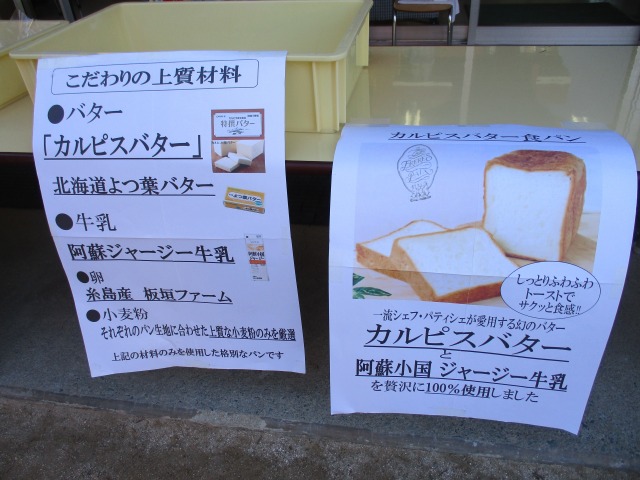 こだわりの上質材料
●バター
「カルピスバター」
特撰バター
北海道よつ葉バター
よつ葉バター
●牛乳
阿蘇ジャージー牛乳
●卵
糸島産 板垣ファーム
●小麦粉
それぞれのパン生地に合わせた上質な小麦粉のみを厳選
上記の材料のみを使用した格別なパンです
カルピスバター食パン
しっとりふわふわ
トーストで
サクッと食感!!
一流シェフ・パティシェが愛用する幻のバター
カルピスバター
と
阿蘇小国 ジャージー牛乳
を贅沢に100%使用しました